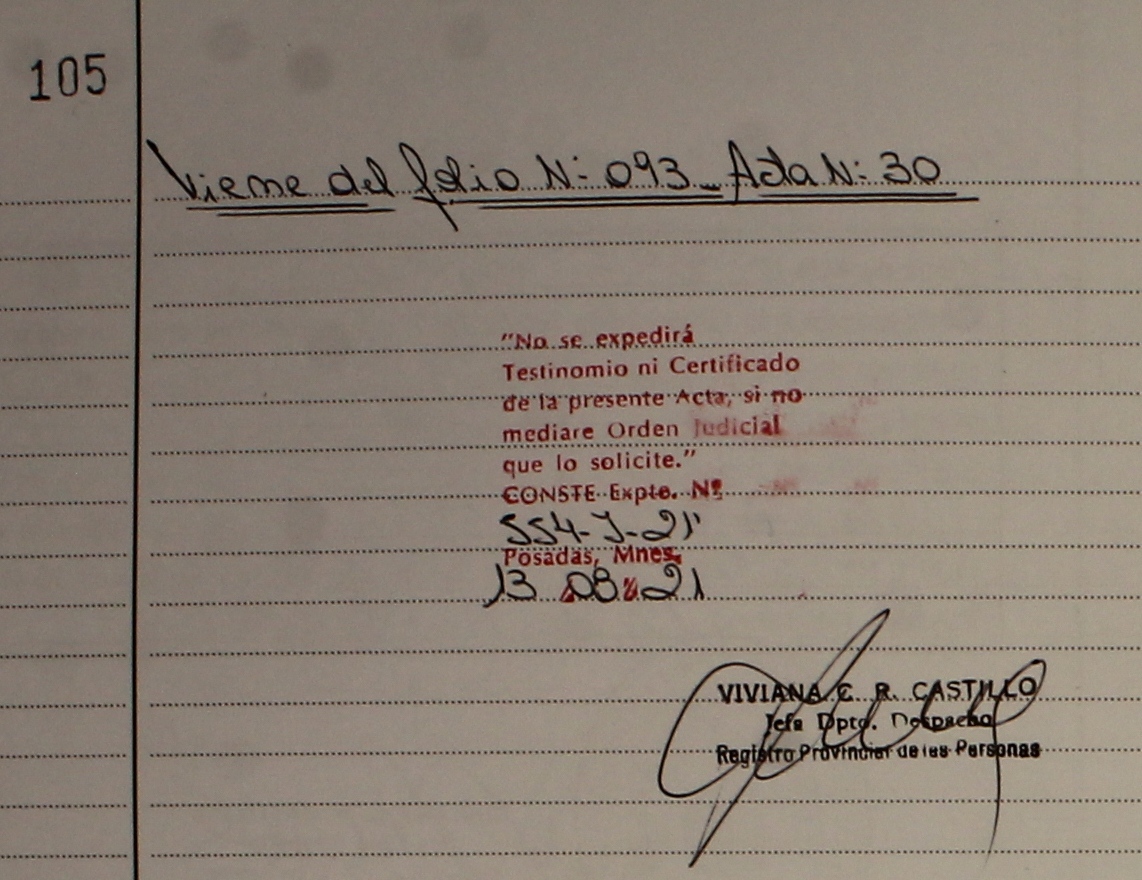 105
Viene del folio N: 093_ Acta N: 30
"No se expedirá
Testinomio ni Certificado
de la presente Acta, si no
mediare Orden Judicial
que lo solicite."
CONSTE Expte. Nº
554-J-21'
Posadas, Mnes.
13 08 21
VIVIANA C. R. CASTILLO
Jefa Dpto. Despacho
Registro Provincial de las Personas